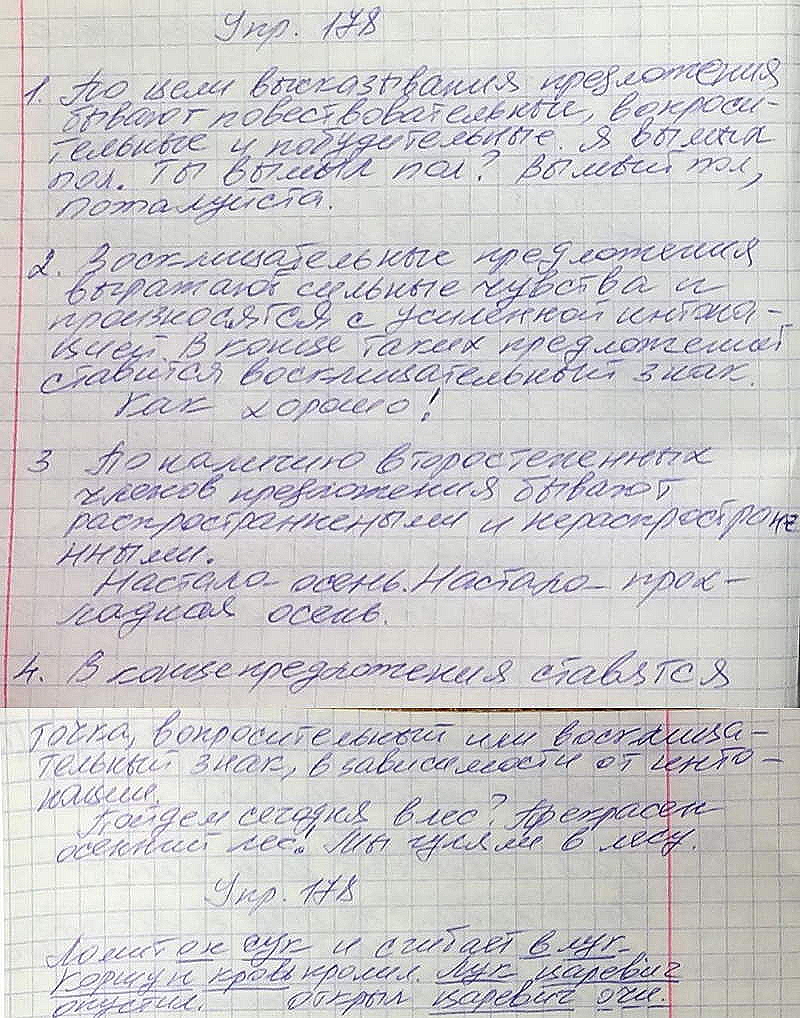 Упр. 178
1. По цели высказывания предложения
бывают повествовательные, вопроси-
тельные и побудительные. Я вымыл
пол. Ты вымыл пол? Вымый пол,
пожалуйста.
2. Восклицательные предложения
выражают сильные чувства и
произносятся с усиленной интона-
цией. В конце таких предложений
ставится восклицательный знак.
Как хорошо!
3 По наличию второстепенных
членов предложения бывают
распространенными и нераспростране
нными.
Настала осень. Настала прох-
ладная осень.
4. В конце предложения ставятся
точка, вопросительный или восклица-
тельный знак, в зависимости от инто-
нации.
Пойдем сегодня в лес? Прекрасен
осенний лес! Мы гуляли в лесу.
Упр. 178
Ломит он сук и сгибает в лук.
Коршун кровь пролил. Лук царевич
опустил. Открыл царевич очи.